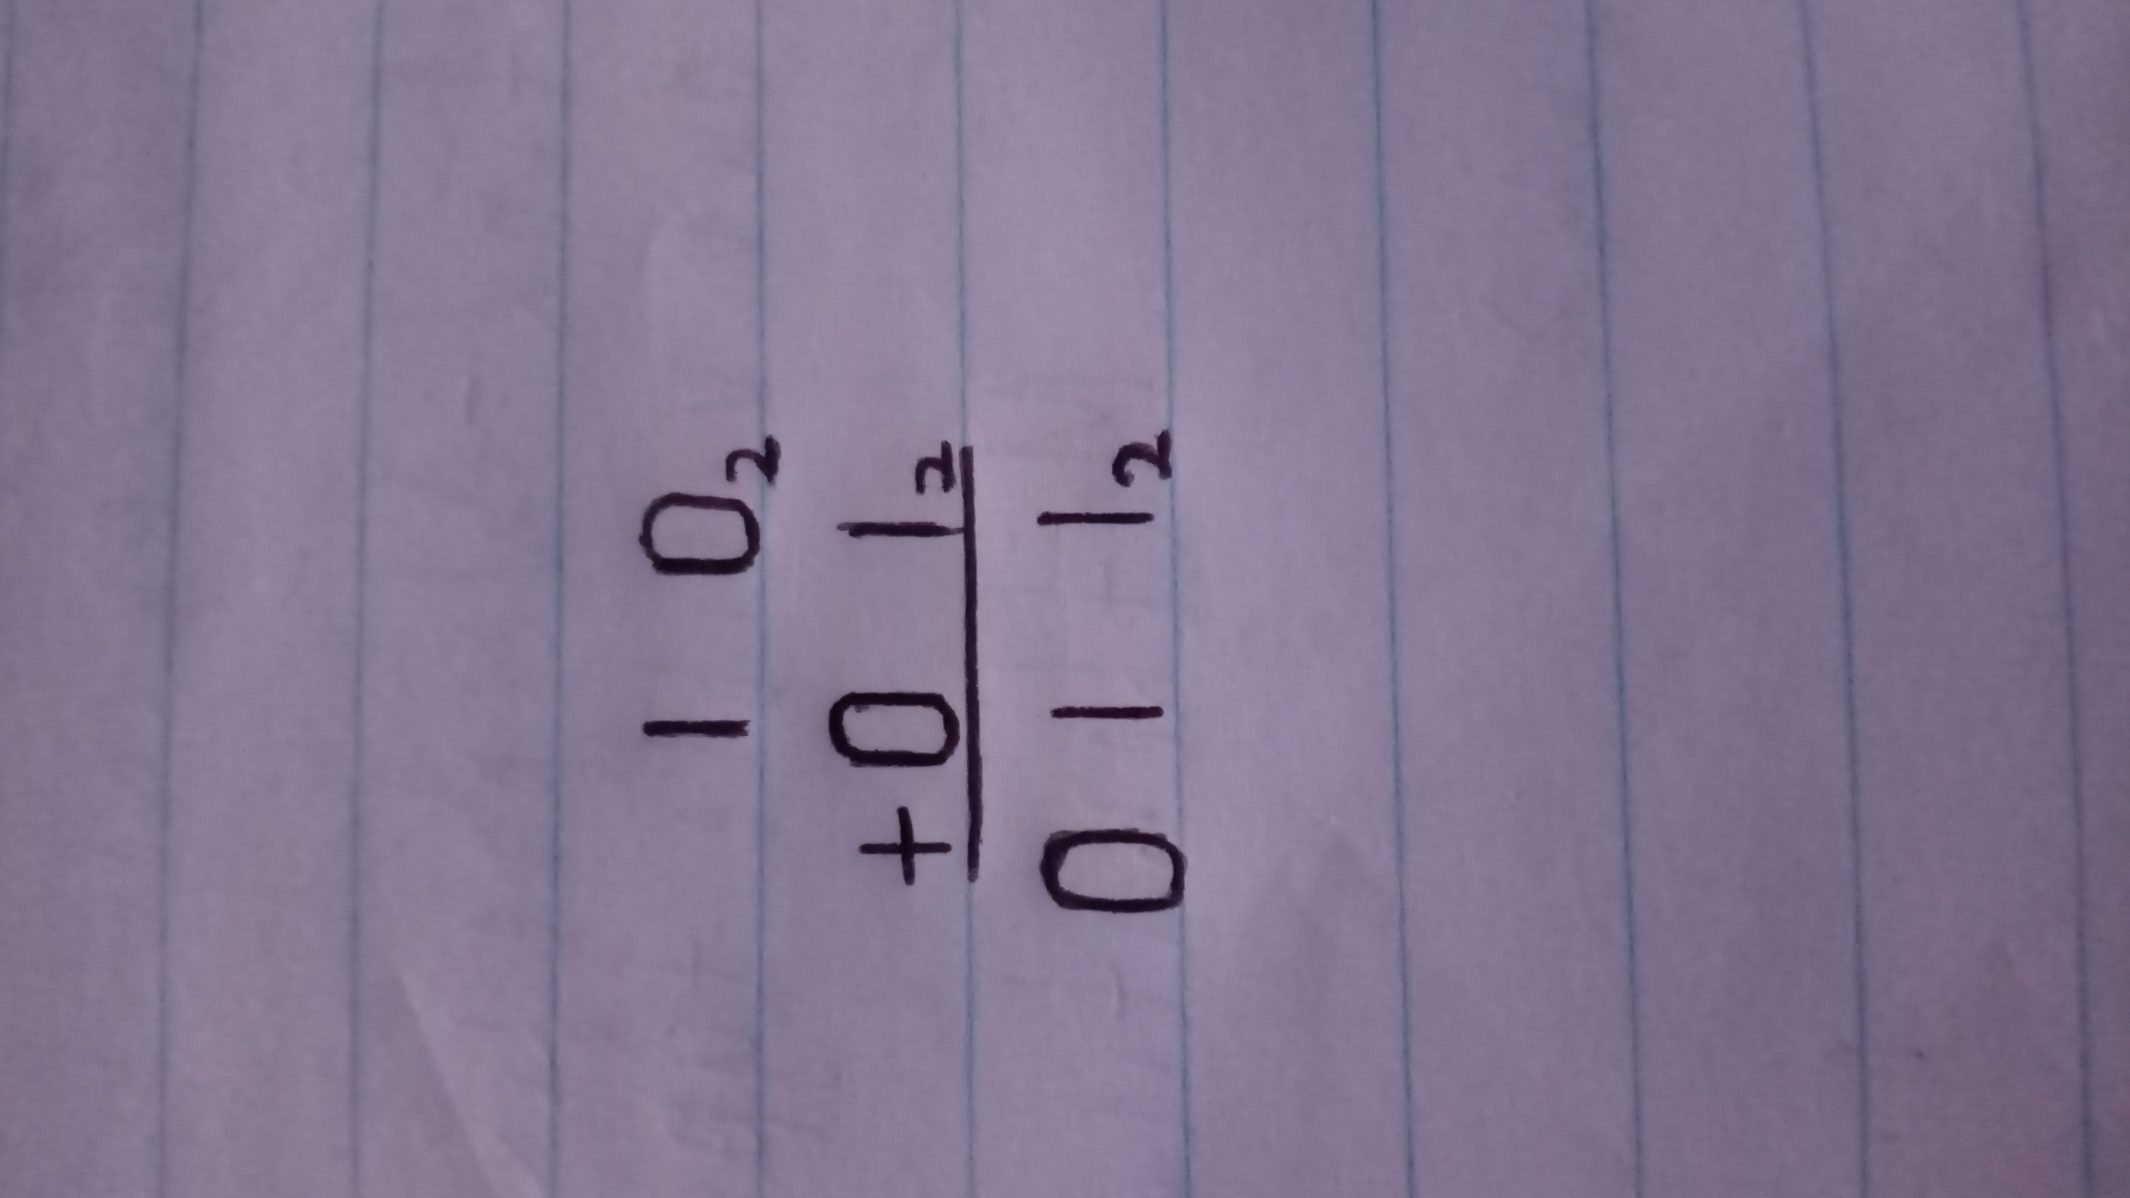 1 0₂
+ 0 1₂
0 1 1₂